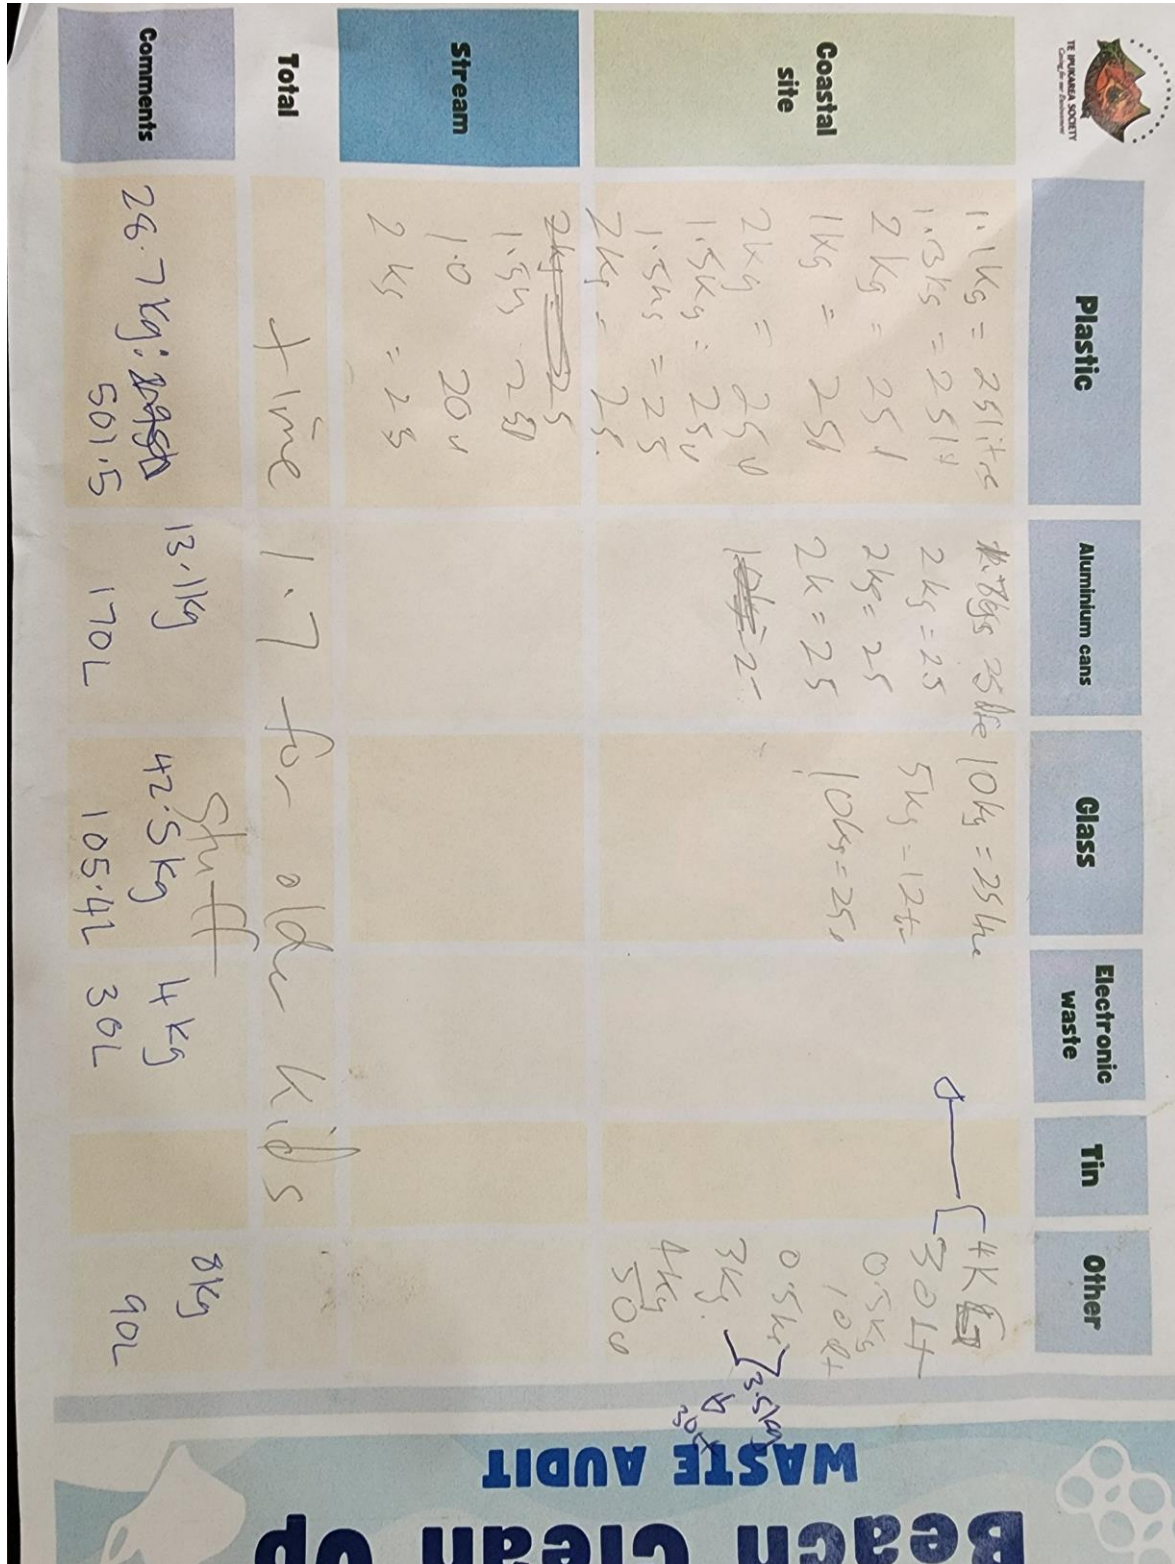 Beach Clean Up
WASTE AUDIT
TE IPUKAREA SOCIETY
Caring for our Environment
Plastic
Aluminium cans
Glass
Electronic
waste
Tin
Other
Coastal
site
1.1kg = 25litre
1.3kg = 25lt
2kg = 25l
1kg = 25l
2kg = 25l
1.5kg = 25l
1.5kg = 25
2kg = 25.
25litre
2kg = 25
2kg = 25
2k = 25
10kg = 25litre
5kg - 12ltr
10kg = 25l
4K
30Lt
0.5kg
10lt
0.5kg
3kg.
3.5kg
30L
4kg
50l
Stream
2kg = 25
1.5kg 25l
1.0 20l
2kg = 25
Total
+ line 1.7 for older kids
stuff
Comments
28.7kg:
501.5
13.1kg
170L
42.5kg
105.4L
4kg
30L
8kg
90L